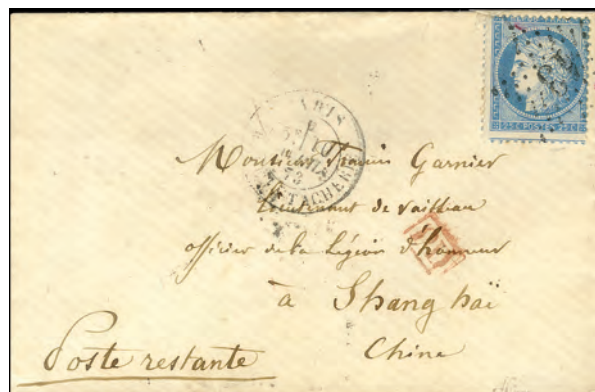 25 C POSTES 25 C
PARIS
73
Monsieur Francis Garnier
Lieutenant de vaisseau
officier de la légion d'honneur
à Shanghaï
Chine
Poste restante